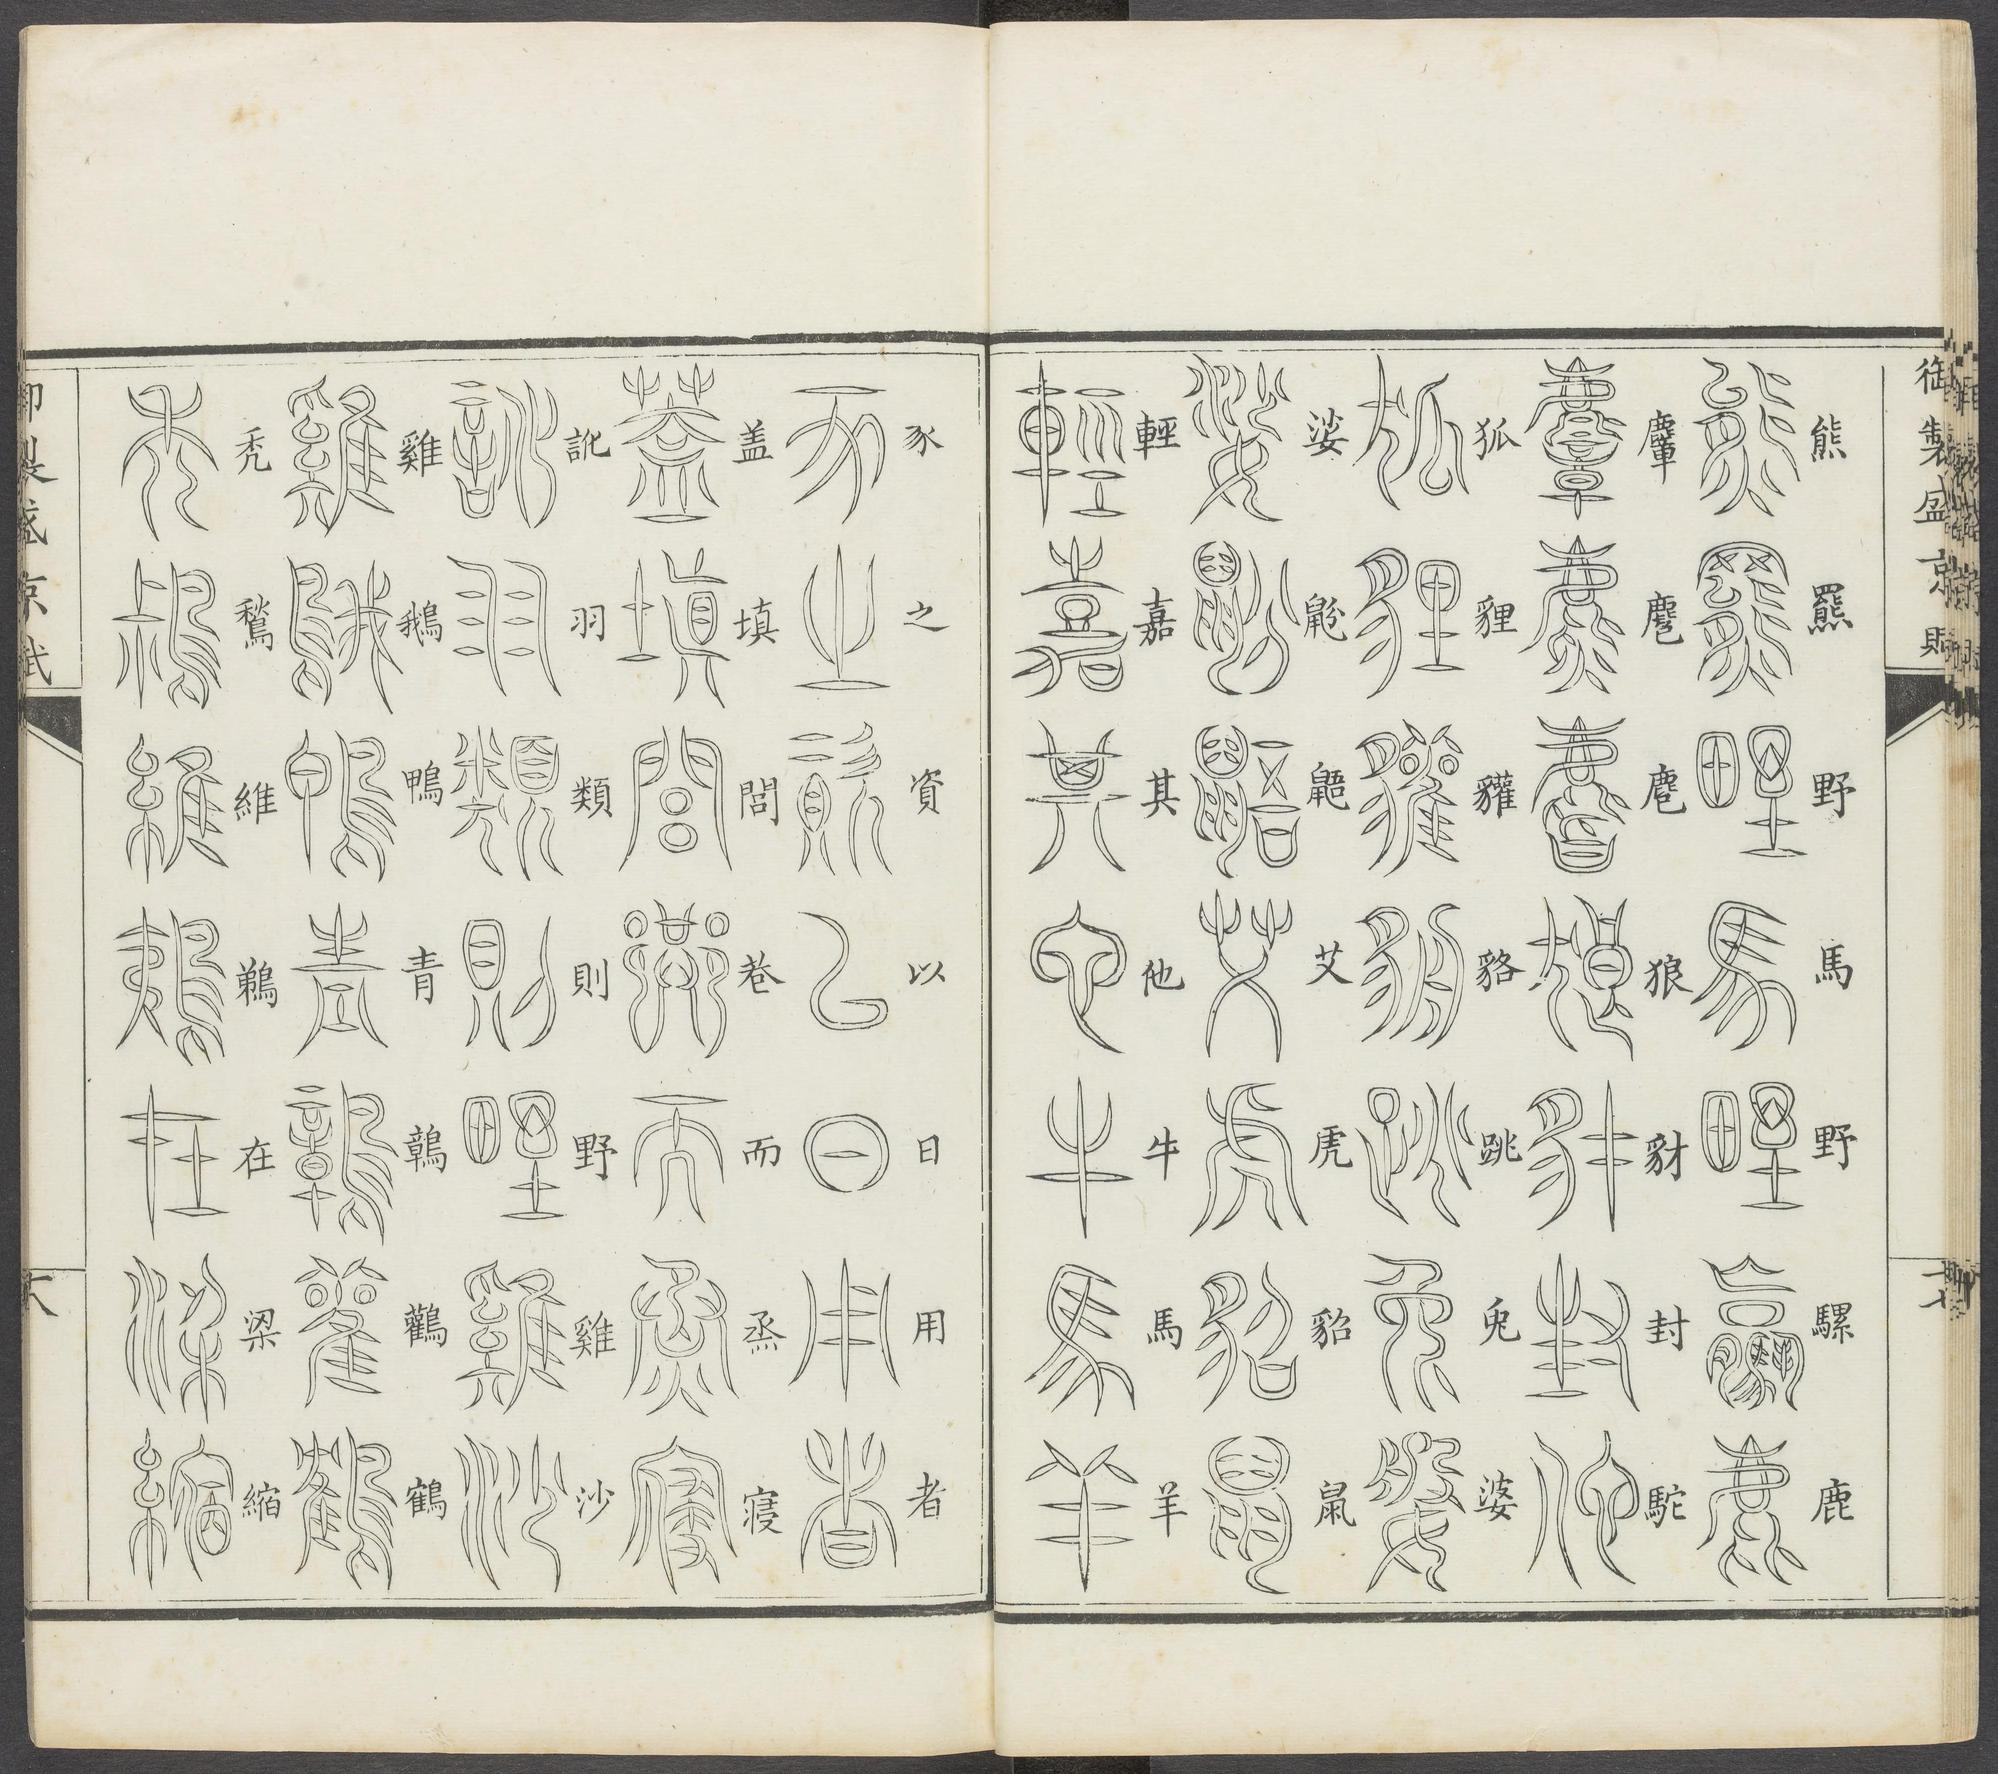 御製盛京賦
熊羆野馬野騾鹿
麕麅麆狼豺封駝
狐貍貛貉跳兔婆
娑鼢鼯艾虎貂鼠
輕嘉其他牛馬羊
豕之資以日用者
盖填閭巷而烝寖
訛羽類則野雞沙
雞鵝鴨青鶉鸛鶴
禿鶖維鵜在梁縮
御製盛京賦